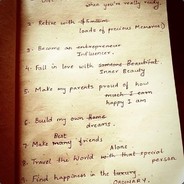 what you're really ready.
2. Retire with
loads of precious Memories
3. Become an entrepreneur
Influencer.
4. Fall in love with someone Beautiful
Inner Beauty
5. Make my parents proud of how
much I earn
happy I am
6. Build my own home
dreams.
Best
7. Make many friends
Alone
8. Travel the World with that special
person
9. Find happiness in the luxury
ORDINARY.